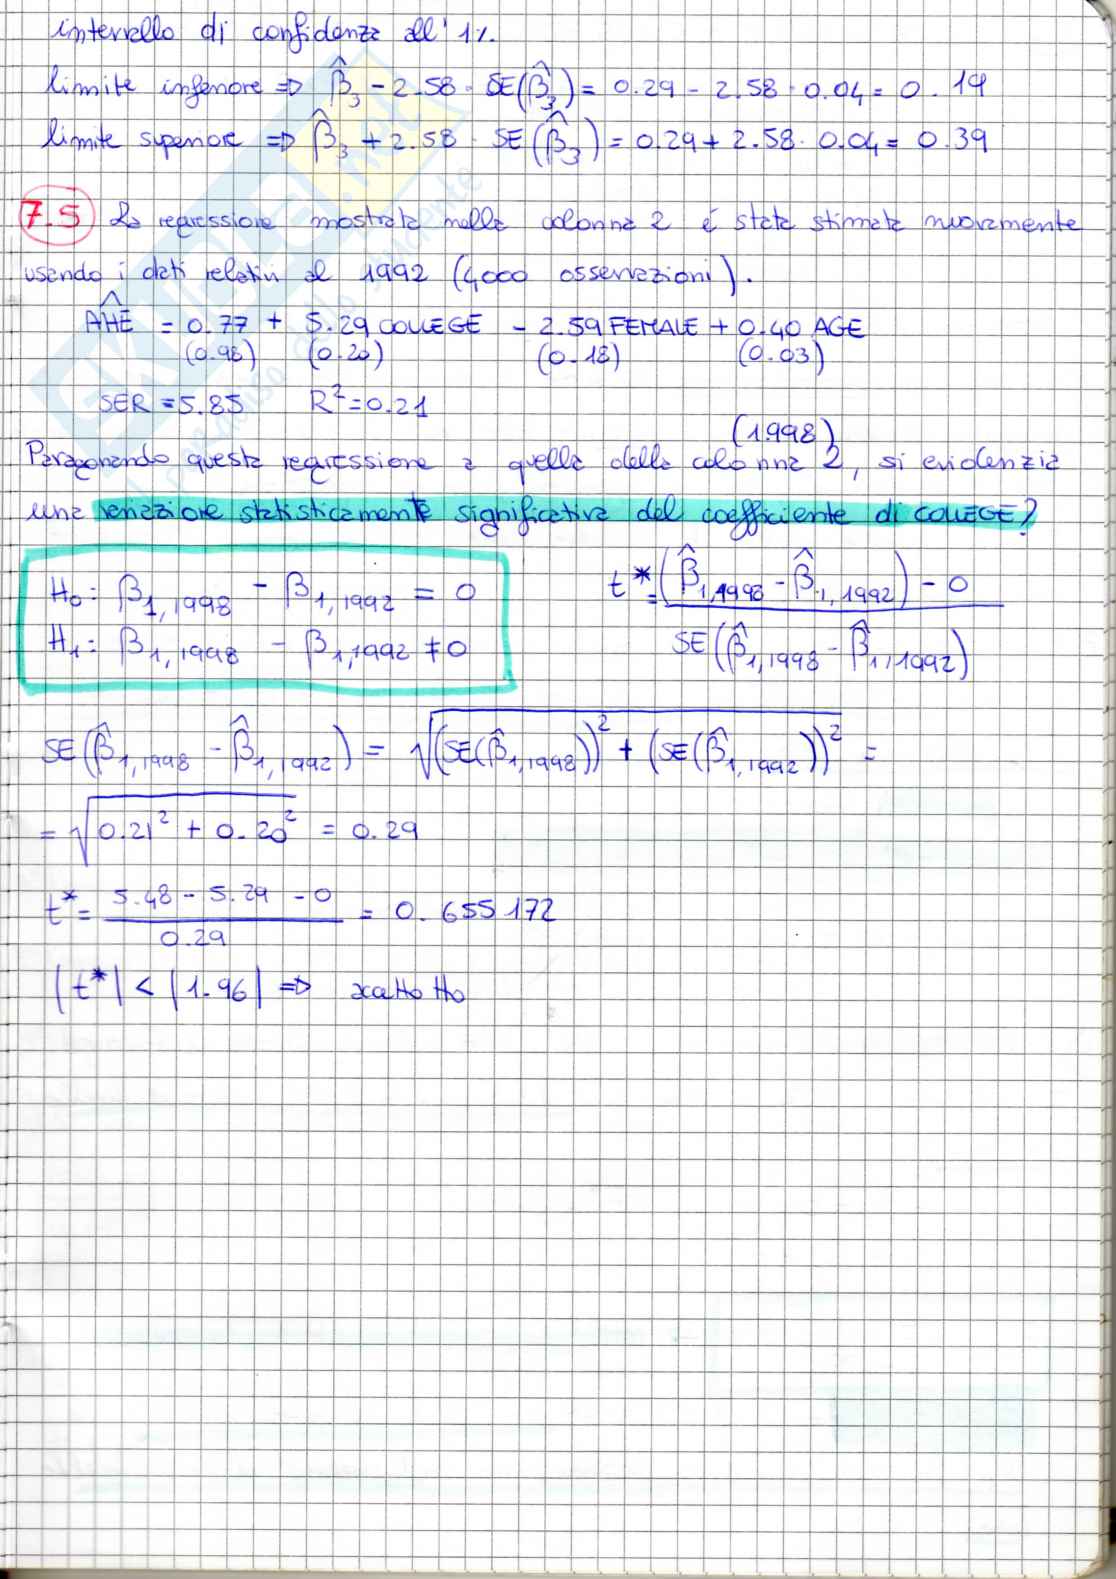 intervallo di confidenza all' 1%.
limite inferiore ⇒ β̂₃ - 2.58 · SE(β̂₃) = 0.29 - 2.58 · 0.04 = 0.19
limite superiore ⇒ β̂₃ + 2.58 · SE(β̂₃) = 0.29 + 2.58 · 0.04 = 0.39
7.5 La regressione mostrata nella colonna 2 é stata stimata nuovamente
usando i dati relativi al 1992 (4000 osservazioni).
AHÊ = 0.77 + 5.29 COLLEGE - 2.59 FEMALE + 0.40 AGE
(0.98) (0.20) (0.18) (0.03)
SER = 5.85 R² = 0.21
(1998)
Paragonando questa regressione a quella della colonna 2, si evidenzia
una variazione statisticamente significativa del coefficiente di COLLEGE?
H₀: β₁,₁₉₉₈ - β₁,₁₉₉₂ = 0
H₁: β₁,₁₉₉₈ - β₁,₁₉₉₂ ≠ 0
t* = (β̂₁,₁₉₉₈ - β̂₁,₁₉₉₂) - 0
SE(β̂₁,₁₉₉₈ - β̂₁,₁₉₉₂)
SE(β̂₁,₁₉₉₈ - β̂₁,₁₉₉₂) = √(SE(β̂₁,₁₉₉₈))² + (SE(β̂₁,₁₉₉₂))² =
= √0.21² + 0.20² = 0.29
t* = 5.48 - 5.29 - 0 = 0.655172
0.29
|t*| < |1.96| ⇒ accetto H₀